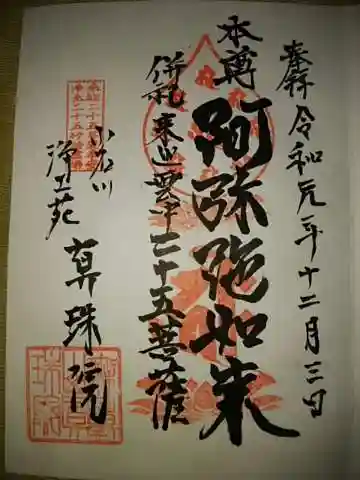 奉拝 令和元年十二月三日
本尊 阿弥陀如来
併礼 来迎雲中二十五菩薩
小石川
浄土苑 真珠院